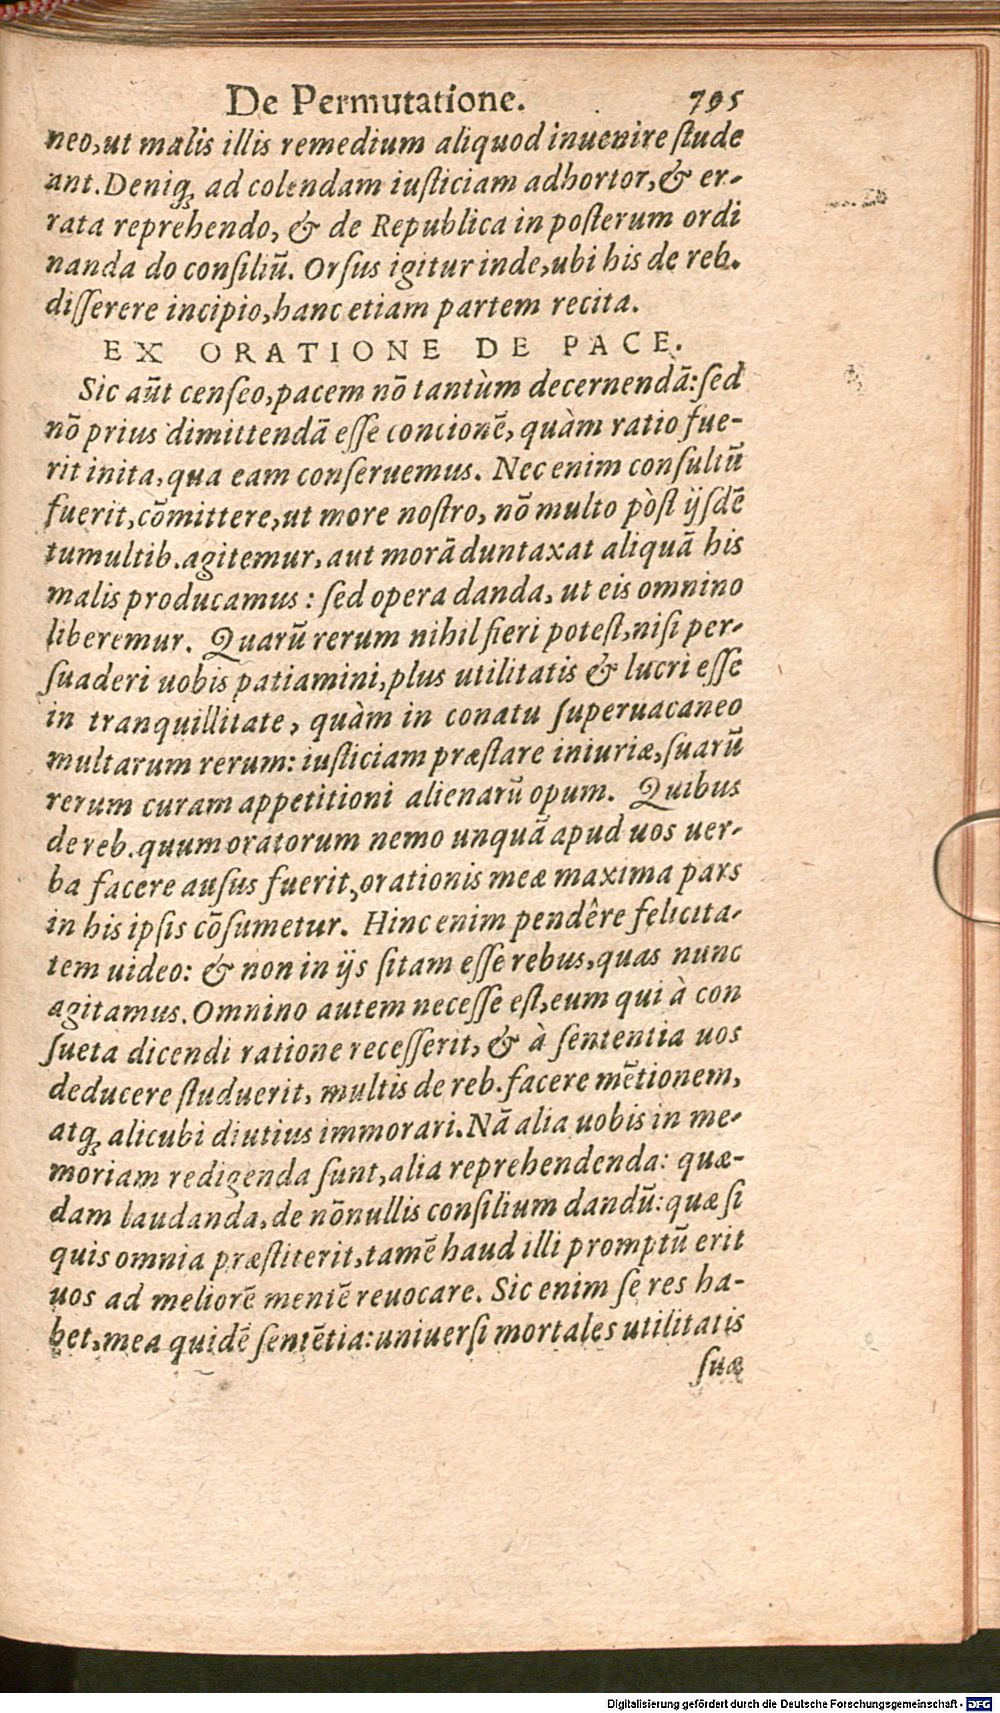 De Permutatione. 795
neo,ut malis illis remedium aliquod inuenire ſtude
ant.Deniqꝫ ad colendam iuſticiam adhortor,& er-
rata reprehendo, & de Republica in poſterum ordi
nanda do conſiliũ. Orſus igitur inde,ubi his de reb.
diſſerere incipio,hanc etiam partem recita.
EX ORATIONE DE PACE.
Sic aũt cenſeo,pacem nõ tantùm decernendã:ſed
nõ prius dimittendã eſſe concionẽ, quàm ratio fue-
rit inita,qua eam conſeruemus. Nec enim conſultũ
fuerit,cõmittere,ut more noſtro, nõ multo pòſt ijſdẽ
tumultib.agitemur,aut morã duntaxat aliquã his
malis producamus: ſed opera danda, ut eis omnino
liberemur. Quarũ rerum nihil fieri poteſt,niſi per-
ſuaderi uobis patiamini,plus utilitatis & lucri eſſe
in tranquillitate, quàm in conatu ſuperuacaneo
multarum rerum: iuſticiam præſtare iniuriæ,ſuarũ
rerum curam appetitioni alienarũ opum. Quibus
de reb.quum oratorum nemo unquã apud uos uer-
ba facere auſus fuerit,orationis meæ maxima pars
in his ipſis cõſumetur. Hinc enim pendêre felicita-
tem uideo: & non in ijs ſitam eſſe rebus,quas nunc
agitamus. Omnino autem neceſſe eſt,eum qui à con
ſueta dicendi ratione receſſerit, & à ſententia uos
deducere ſtuduerit, multis de reb.facere mẽtionem,
atqꝫ alicubi diutius immorari.Nã alia uobis in me-
moriam redigenda ſunt,alia reprehendenda: quæ-
dam laudanda,de nõnullis conſilium dandũ:quæ ſi
quis omnia præſtiterit,tamẽ haud illi promptũ erit
uos ad meliorẽ mentẽ reuocare. Sic enim ſe res ha-
bet,mea quidẽ ſentẽtia:uniuerſi mortales utilitatis
ſuæ
Digitalisierung gefördert durch die Deutsche Forschungsgemeinschaft - DFG